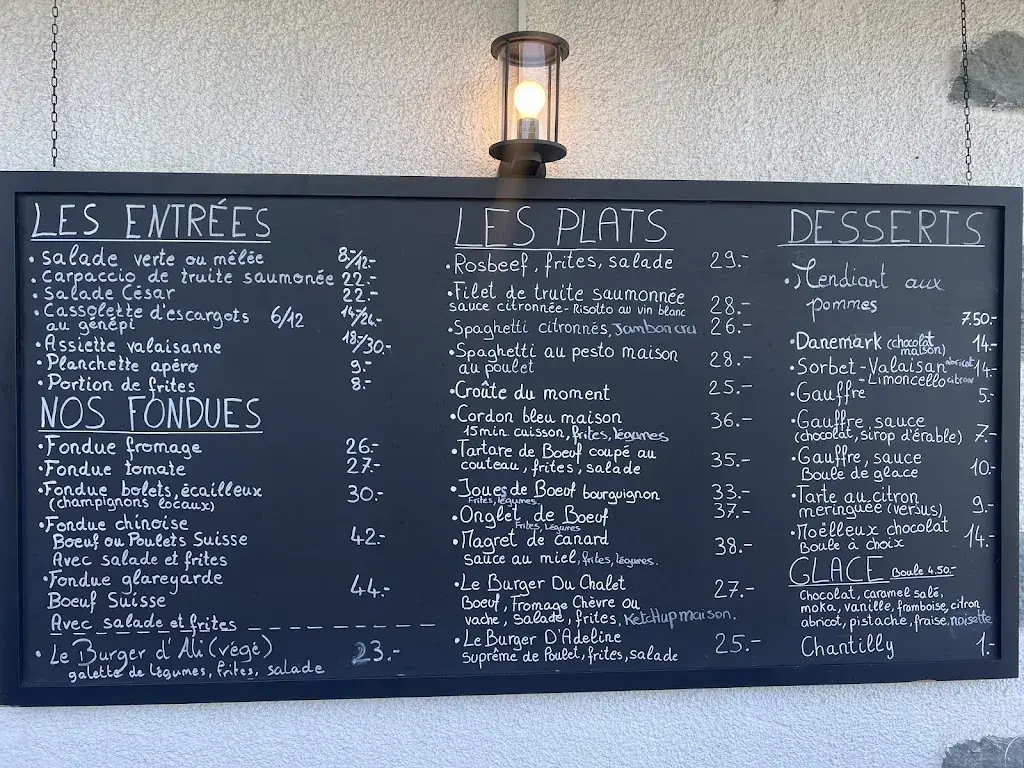 LES ENTRÉES
• Salade verte ou mêlée 8-/12.-
• Carpaccio de truite saumonée 22.-
• Salade César 22.-
• Cassolette d'escargots 6/12 14-/24.-
au génépi
• Assiette valaisanne 18-/30.-
• Planchette apéro 9.-
• Portion de frites 8.-
NOS FONDUES
• Fondue fromage 26.-
• Fondue tomate 27.-
• Fondue bolets, écailleux 30.-
(champignons locaux)
• Fondue chinoise
Boeuf ou Poulets Suisse 42.-
Avec salade et frites
• Fondue glareyarde 44.-
Boeuf Suisse
Avec salade et frites
• Le Burger d'Ali (végé) 23.-
galette de légumes, frites, salade
LES PLATS
• Rosbeef, frites, salade 29.-
• Filet de truite saumonnée
sauce citronnée - Risotto au vin blanc 28.-
• Spaghetti citronnés, Jambon cru 26.-
• Spaghetti au pesto maison
au poulet 28.-
• Croûte du moment 25.-
• Cordon bleu maison 36.-
15min cuisson, frites, légumes
• Tartare de Boeuf coupé au
couteau, frites, salade 35.-
• Joues de Boeuf bourguignon 33.-
Frites, légumes
• Onglet de Boeuf 37.-
Frites, Légumes
• Magret de canard
sauce au miel, frites, légumes. 38.-
• Le Burger Du Chalet 27.-
Boeuf, Fromage Chèvre ou
vache, Salade, frites, Ketchup maison.
• Le Burger D'Adeline 25.-
Suprême de Poulet, frites, salade
DESSERTS
• Mendiant aux
pommes 7.50.-
• Danemark (chocolat maison) 14.-
• Sorbet - Valaisan abricot 14.-
- Limoncello citron
• Gauffre 5.-
• Gauffre, sauce
(chocolat, sirop d'érable) 7.-
• Gauffre, sauce
Boule de glace 10.-
• Tarte au citron
meringuée (versus) 9.-
• Moëlleux chocolat
Boule à choix 14.-
GLACE Boule 4.50.-
Chocolat, caramel salé,
moka, vanille, framboise, citron
abricot, pistache, fraise, noisette
Chantilly 1.-